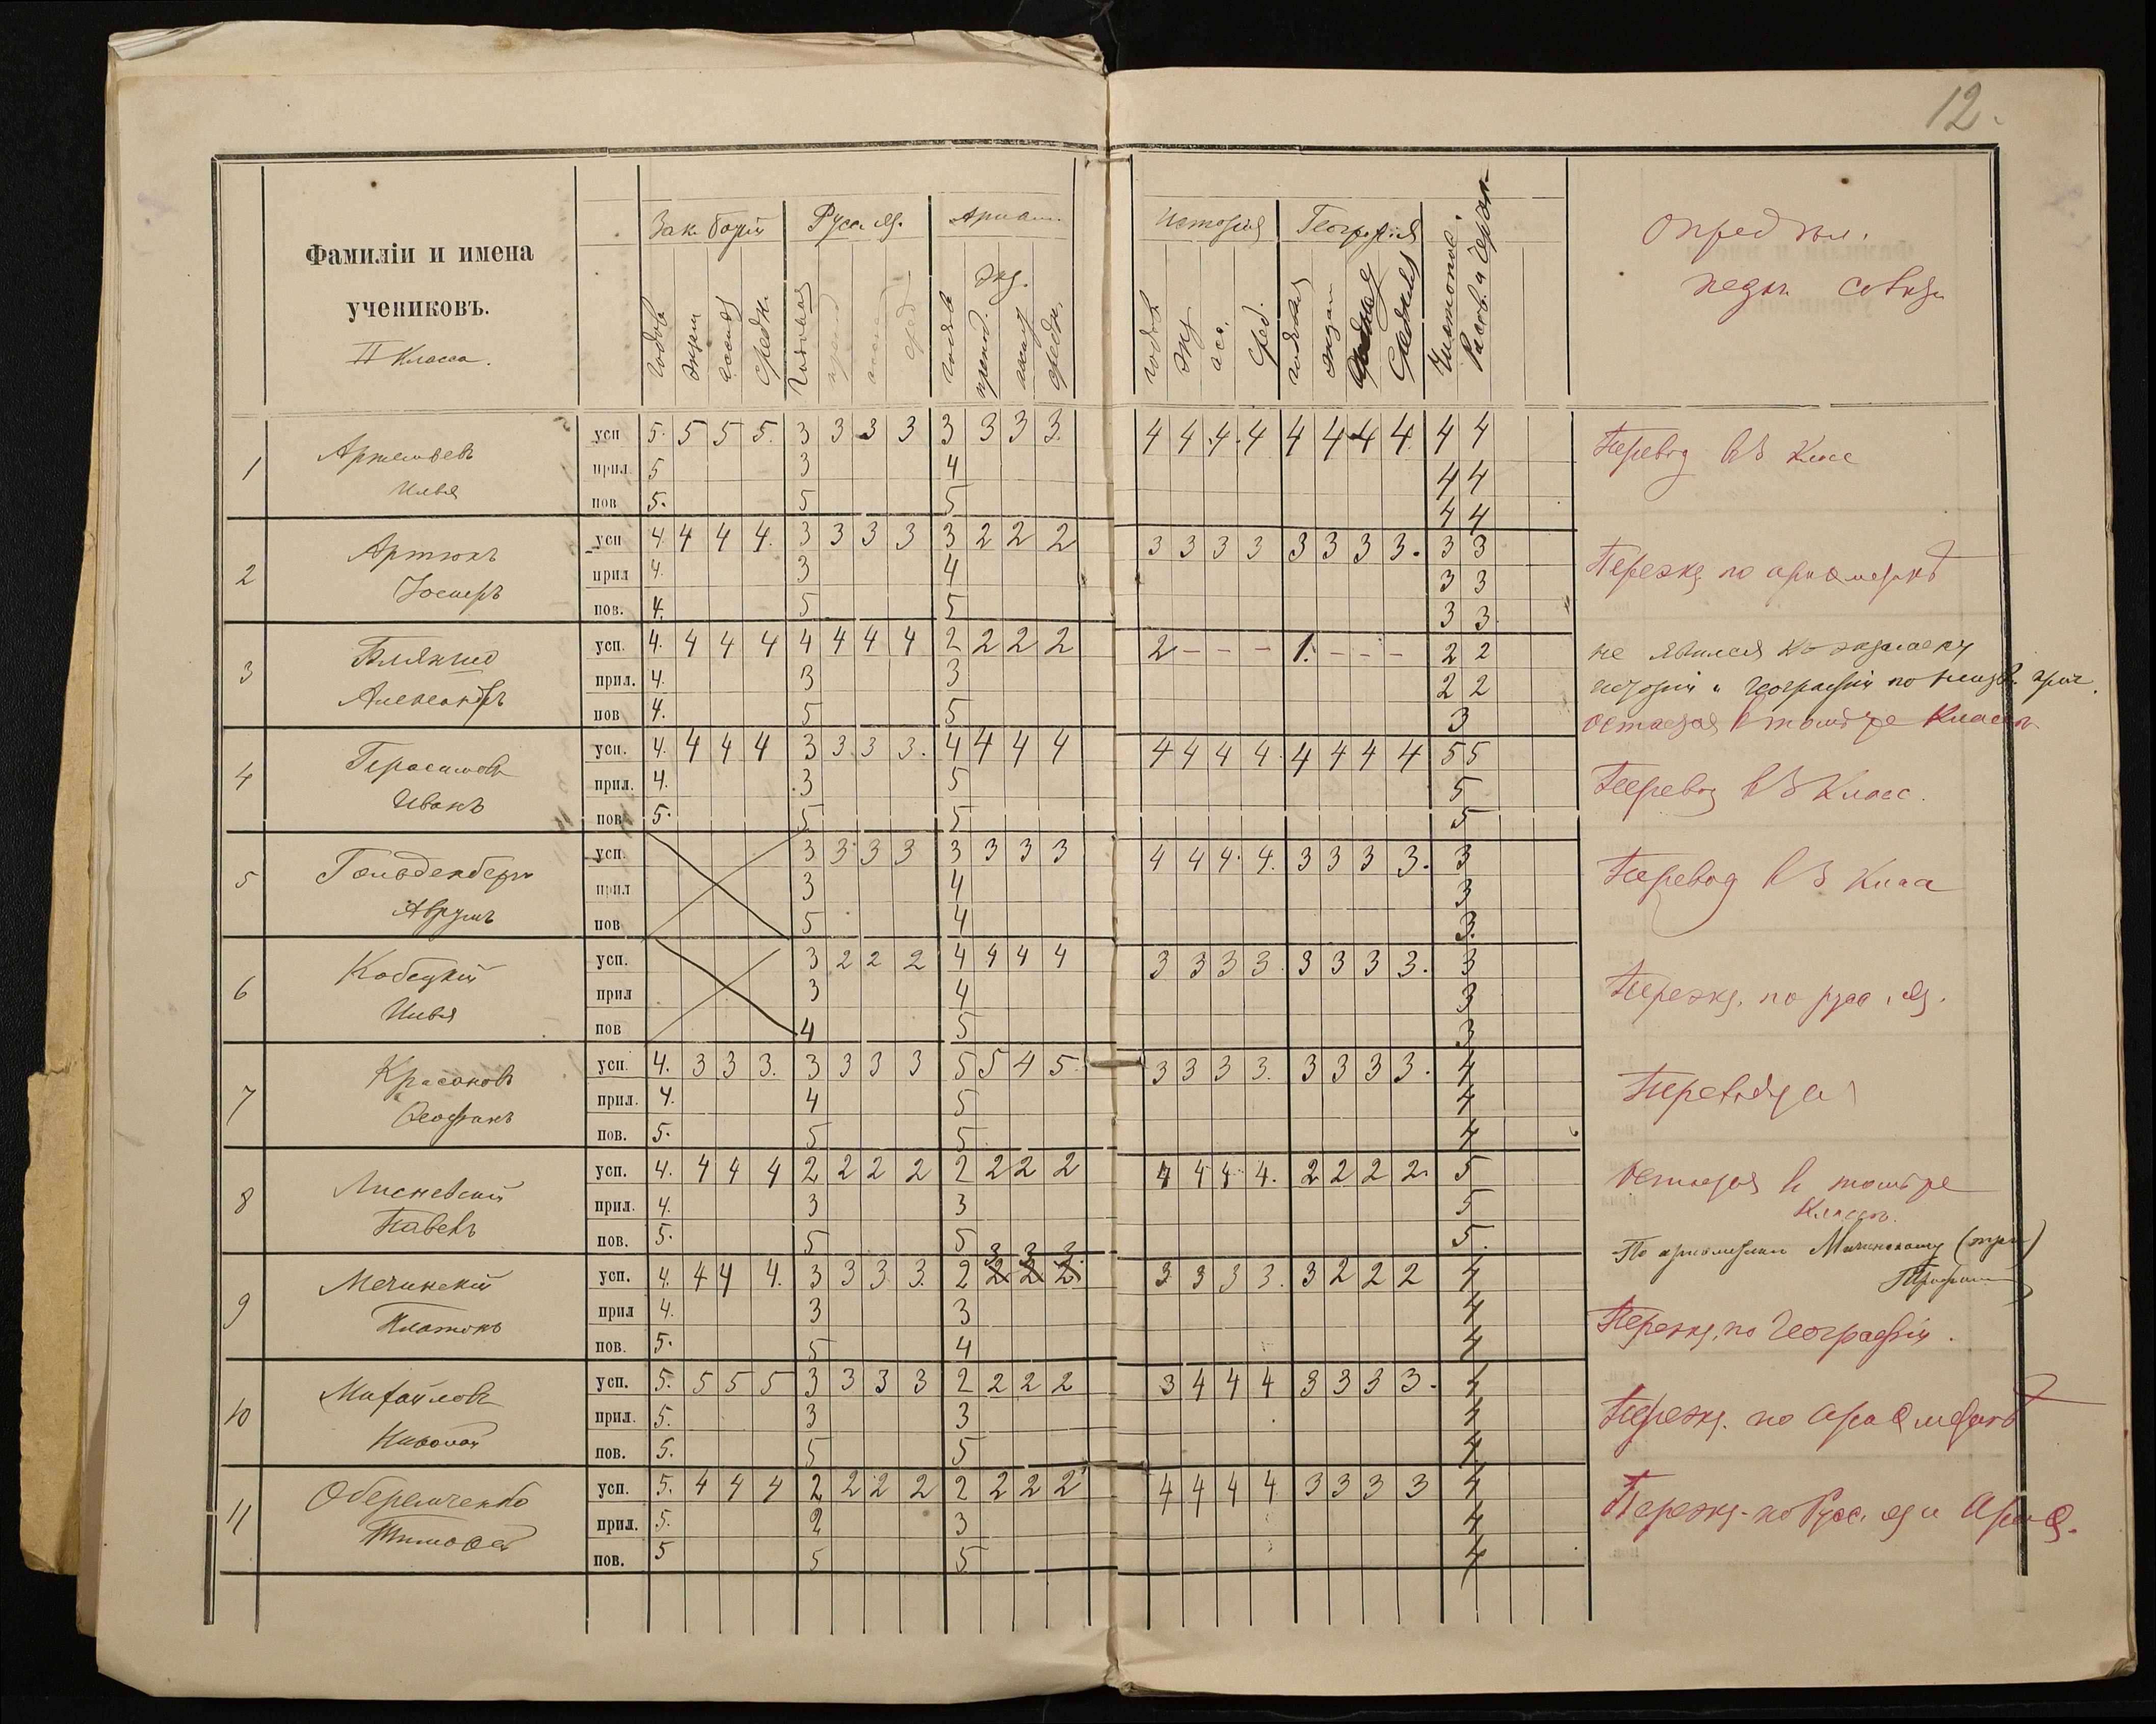 12.
Фамиліи и имена
учениковъ.
II Класса.
Зак. божій
Русск. яз.
Исторія
Географія
годов
экзам
средн.
Годовая
сред
экз.
средн.
экз
асс.
сред.
годовая
экзам
Средняя
Чистопис.
Рисов. и Черчен
Опредѣл.
педаг. совѣта
1 Артемьевъ Илья
усп 5. 5 5 5. 3 3 3 3 3 3 3 3. 4 4 4. 4 4 4 4 4 4 4 Перевод в 3 класс
прил 5 3 4 4 4
пов 5. 5 5 4 4
2 Артюхъ Іосифъ
усп 4. 4 4 4. 3 3 3 3 3 2 2 2 3 3 3 3 3 3 3 3. 3 3 Переэкз. по ариѳметикѣ
прил 4. 3 4 3 3
пов. 4. 5 5 3 3
3 Александръ
усп. 4. 4 4 4 4 4 4 4 2 2 2 2 2 - - - 1. - - - 2 2 не явился къ экзамену
прил. 4. 3 3 2 2 исторіи и географіи по неизв. прич.
пов 4. 5 5 3 остается в томъ же классѣ.
4 Герасимовъ Иванъ
усп. 4. 4 4 4 3 3. 3 3. 4 4 4 4 4 4 4 4. 4 4 4 4 5 5 Перевод в 3 Класс.
прил. 4. 3 5 5
пов 5. 5 5 5
5 Гольденберг Аврумъ
усп. 3 3 3 3 3 3 3 3 4 4 4. 4. 3 3 3 3. 3 Перевод в 3 класс
прил 3 4 3
пов 5 4 3.
6 Кобецкій Илья
усп. 3 2 2 2 4 4 4 4 3 3 3 3. 3 3 3 3. 3 Переэкз. по русс. яз.
прил 3 4 3
пов 4 5 3
7 Красаковъ Ѳеофанъ
усп. 4. 3 3 3. 3 3 3 3 5 5 4 5 3 3 3 3. 3 3 3 3. 4 Переводится
прил. 4. 4 5 4
пов. 5. 5 5 4
8 Лисневскій Павелъ
усп. 4. 4 4 4 2 2 2 2 2 2 2 2 4 4 4 4. 2 2 2 2. 5 остается в томъ же
классѣ.
прил. 4. 3 3 5
пов. 5. 5 5 5.
По ариѳметикѣ Мечинскому (три)
9 Мечинскій Платонъ
3 3 3
усп. 4. 4 4 4. 3 3 3 3. 2 2 2 2 3 3 3 3. 3 2 2 2 4
прил 4. 3 3 4 Переэкз. по Географіи.
пов. 5. 5 4 4
10 Михайловъ Николай
усп. 5. 5 5 5 3 3 3 3 2 2 2 2 3 4 4 4 3 3 3 3. 4 Переэкз. по Ариѳметикѣ
прил. 5. 3 3 4
пов. 5. 5 5 4
11 Оберемченко Тимоѳей
усп. 5. 4 4 4 2 2 2 2 2 2 2 2 4 4 4 4 3 3 3 3 4 Переэкз. по Русс. яз и Ариѳ.
прил. 5. 2 3 4
пов. 5 5 5 4